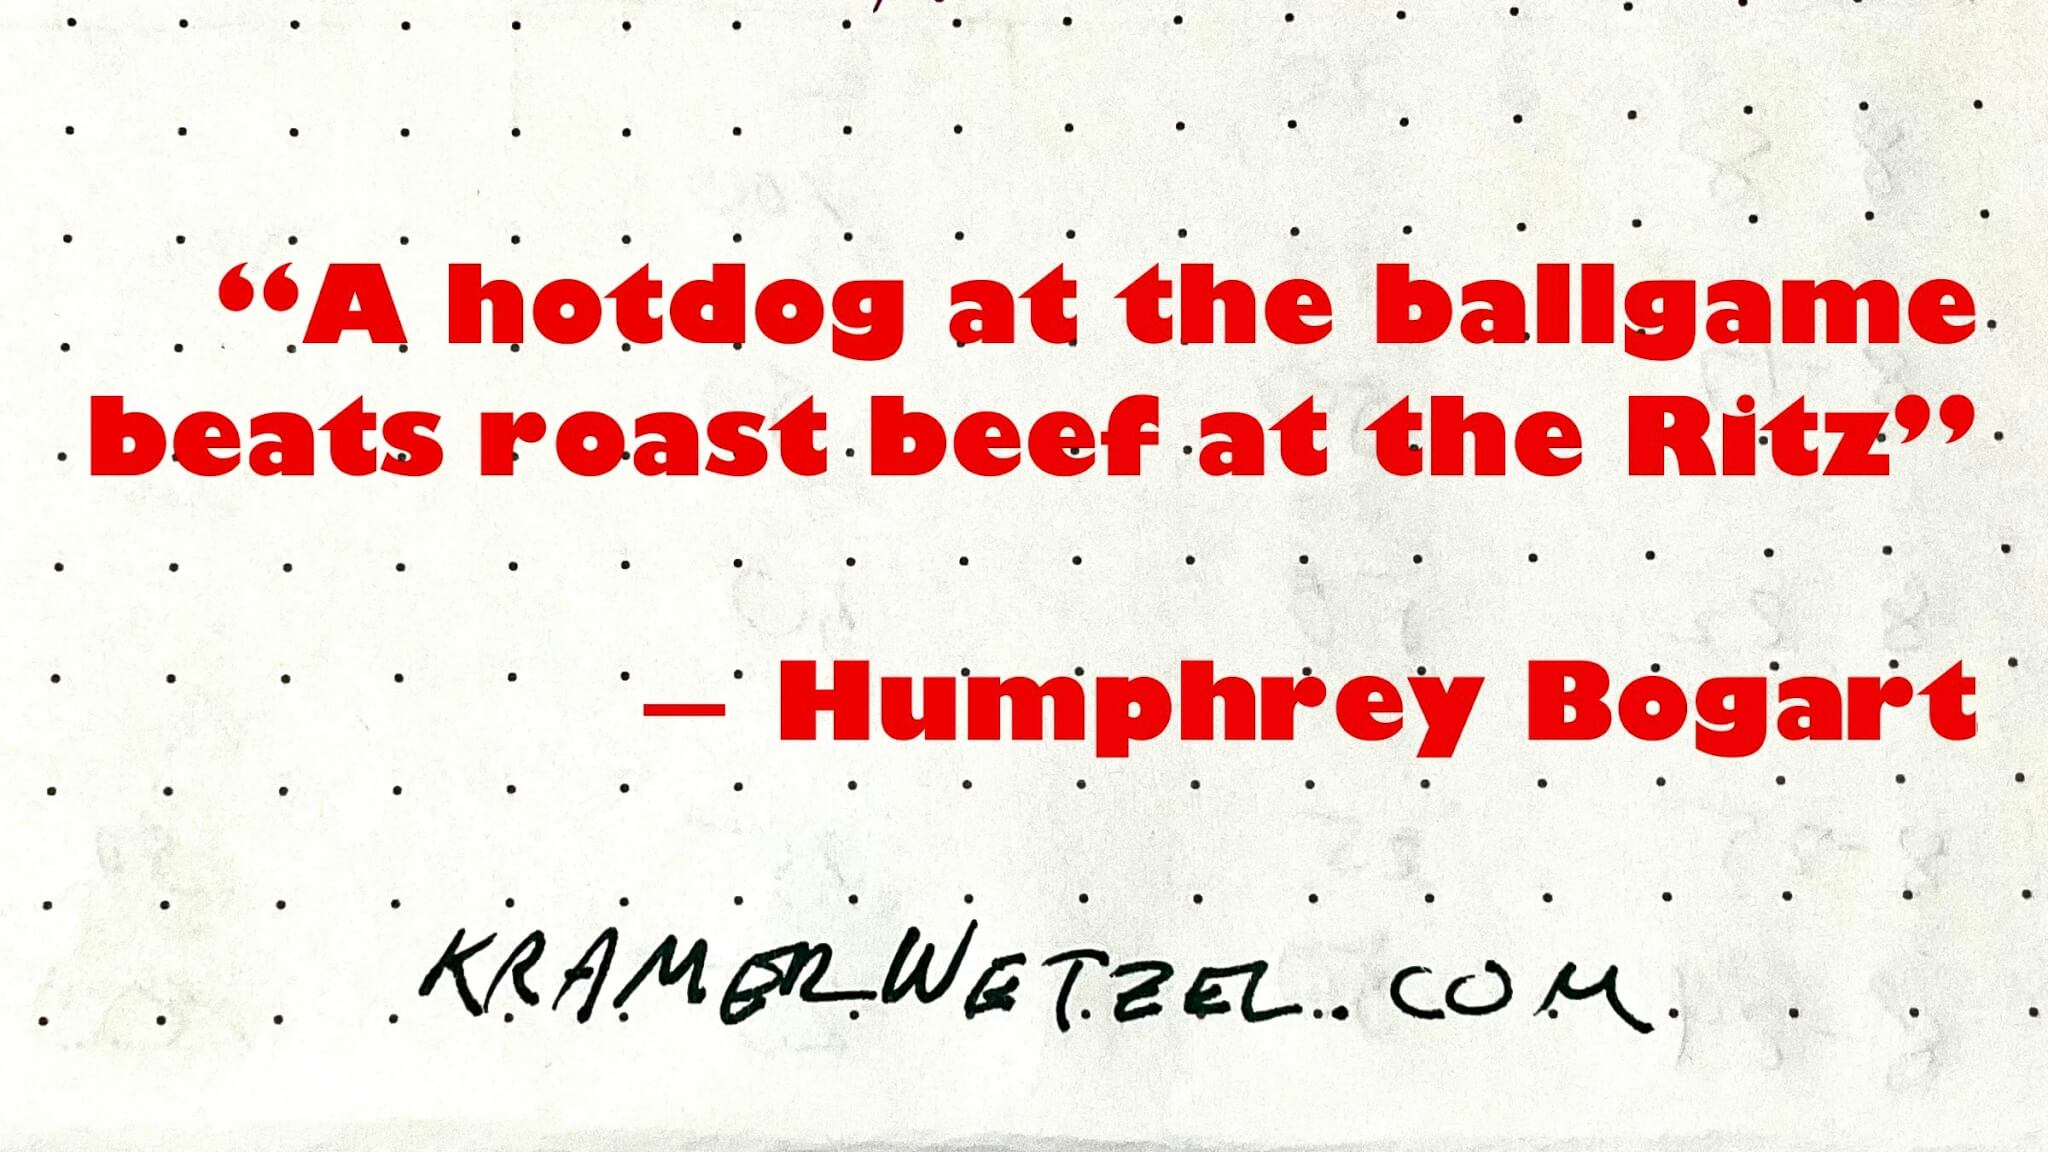 “A hotdog at the ballgame
beats roast beef at the Ritz”
— Humphrey Bogart
KRAMERWETZEL.COM